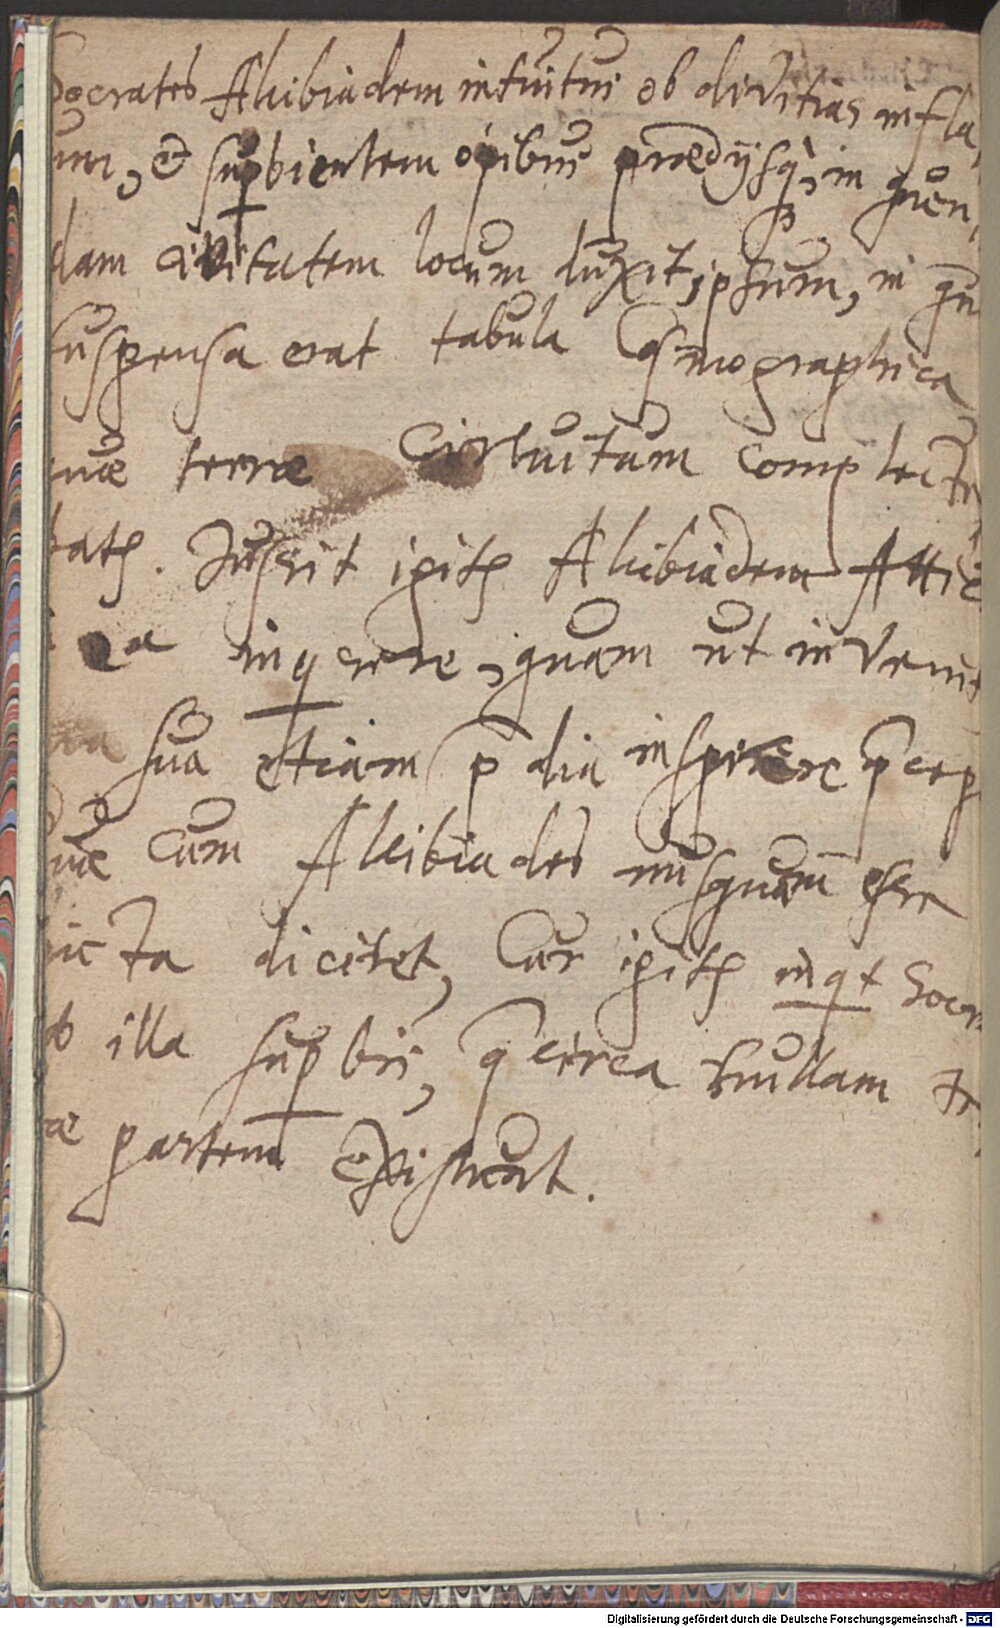 Socrates Alcibiadem intuitus ob divitias infla,
um, et supbientem opibus praedijsq;, in quen,
dam civitatem locum duxit ipsum, in quo
suspensa erat tabula Cosmographica
quae terrae circuitum complecte
batr. Jussit igitr Alcibiadem Attic
ea inqrere, quam ut invenit
sua etiam pdia inspicere pcep
quae cum Alcibiades nusquam esse
picta diceret, Cur igitr inqt Socr
ob illa supbis, q circa nullam te
ae partem existunt.
Digitalisierung gefördert durch die Deutsche Forschungsgemeinschaft - DFG